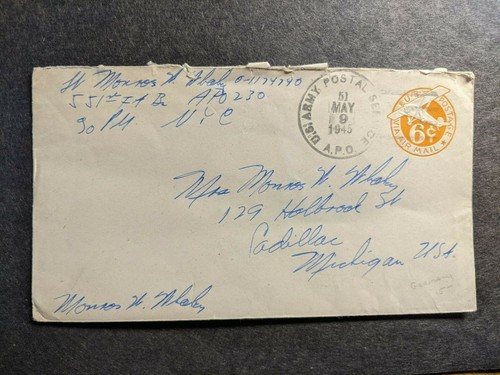 Lt Monroe W. Whaley O-1174740
551st F A Bn APO 230
% PM NYC
U.S. ARMY POSTAL SERVICE
51
MAY
9
1945
A.P.O.
U.S. POSTAGE
6¢
VIA AIR MAIL
Mrs Monroe W. Whaley
129 Holbrook St
Cadillac
Michigan USA.
Monroe W. Whaley
Germany